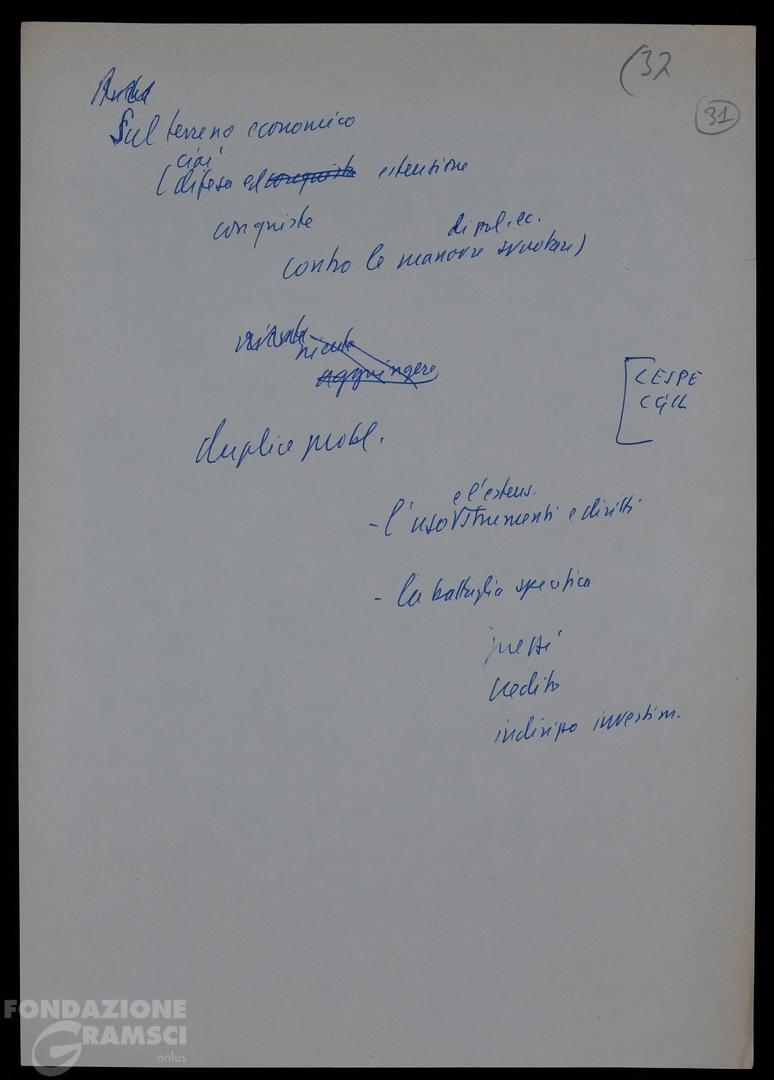 (32
31
Anche
Sul terreno economico
cioè
(difesa ed conquista estensione
conquiste
di pol. ec.
contro le manovre svuotare)
niente
aggiungere
CESPE
CGIL
Duplice probl.
e l'estens.
- l'uso strumenti e diritti
- la battaglia specifica
prezzi
credito
indirizzo investim.
FONDAZIONE
GRAMSCI
onlus